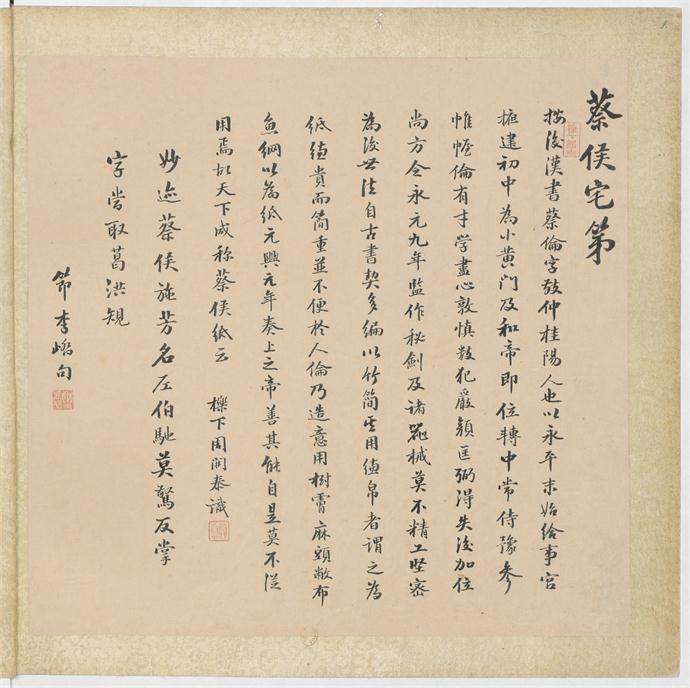 蔡侯宅第
按後漢書蔡倫字敬仲桂陽人也以永平末始給事宮
掖建初中為小黃門及和帝即位轉中常侍豫參
帷幄倫有才學盡心敦慎數犯嚴顏匡弼得失後加位
尚方令永元九年監作秘劍及諸器械莫不精工堅密
為後世法自古書契多編以竹簡其用縑帛者謂之為
紙縑貴而簡重並不便於人倫乃造意用樹膚麻頭敝布
魚網以為紙元興元年奏上之帝善其能自是莫不從
用焉故天下咸稱蔡侯紙云 櫟下周開泰識
妙迹蔡侯施芳名左伯馳莫驚反掌
字當取葛洪規
節李嶠句